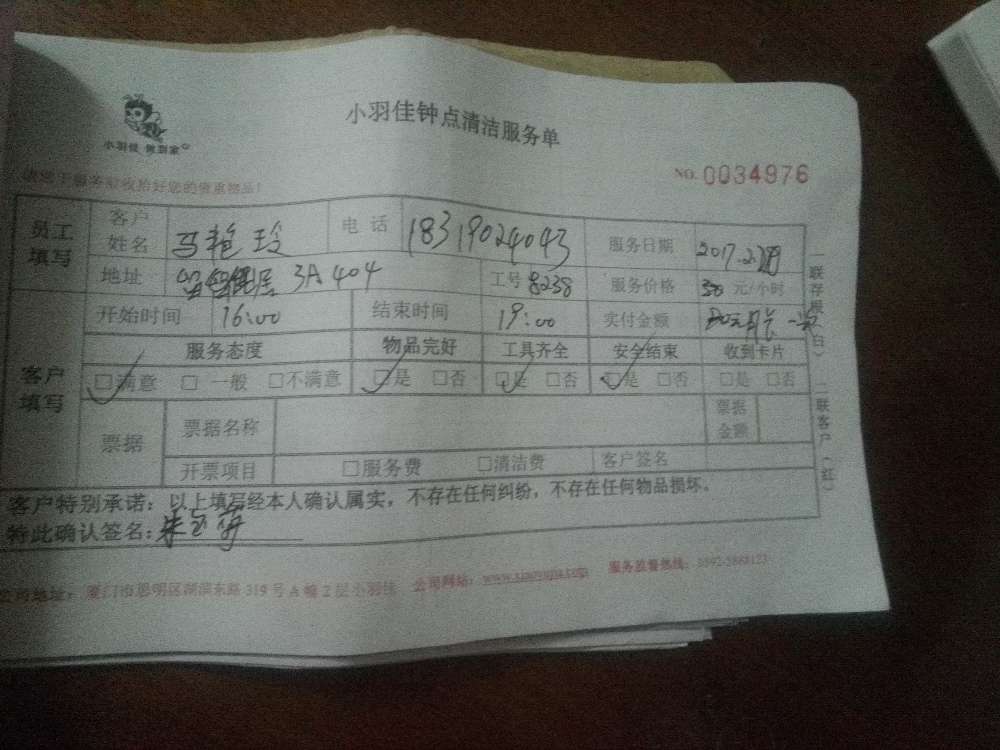 小羽佳钟点清洁服务单
小羽佳 做到家
NO. 0034976
员工填写 客户姓名 马艳玲 电话 18319024043 服务日期 2017.2.
地址 3A 404 工号 8238 服务价格 元/小时
开始时间 16:00 结束时间 19:00 实付金额
客户填写 服务态度 物品完好 工具齐全 安全结束 收到卡片
□满意 □一般 □不满意 □是 □否 □是 □否 □是 □否 □是 □否
票据 票据名称 票据金额
开票项目 □服务费 □清洁费 客户签名
客户特别承诺：以上填写经本人确认属实，不存在任何纠纷，不存在任何物品损坏。
特此确认签名：
公司地址：厦门市思明区湖滨东路319号A幢2层小羽佳 公司网站： 服务监督热线：
一联存根（白） 二联客户（红）